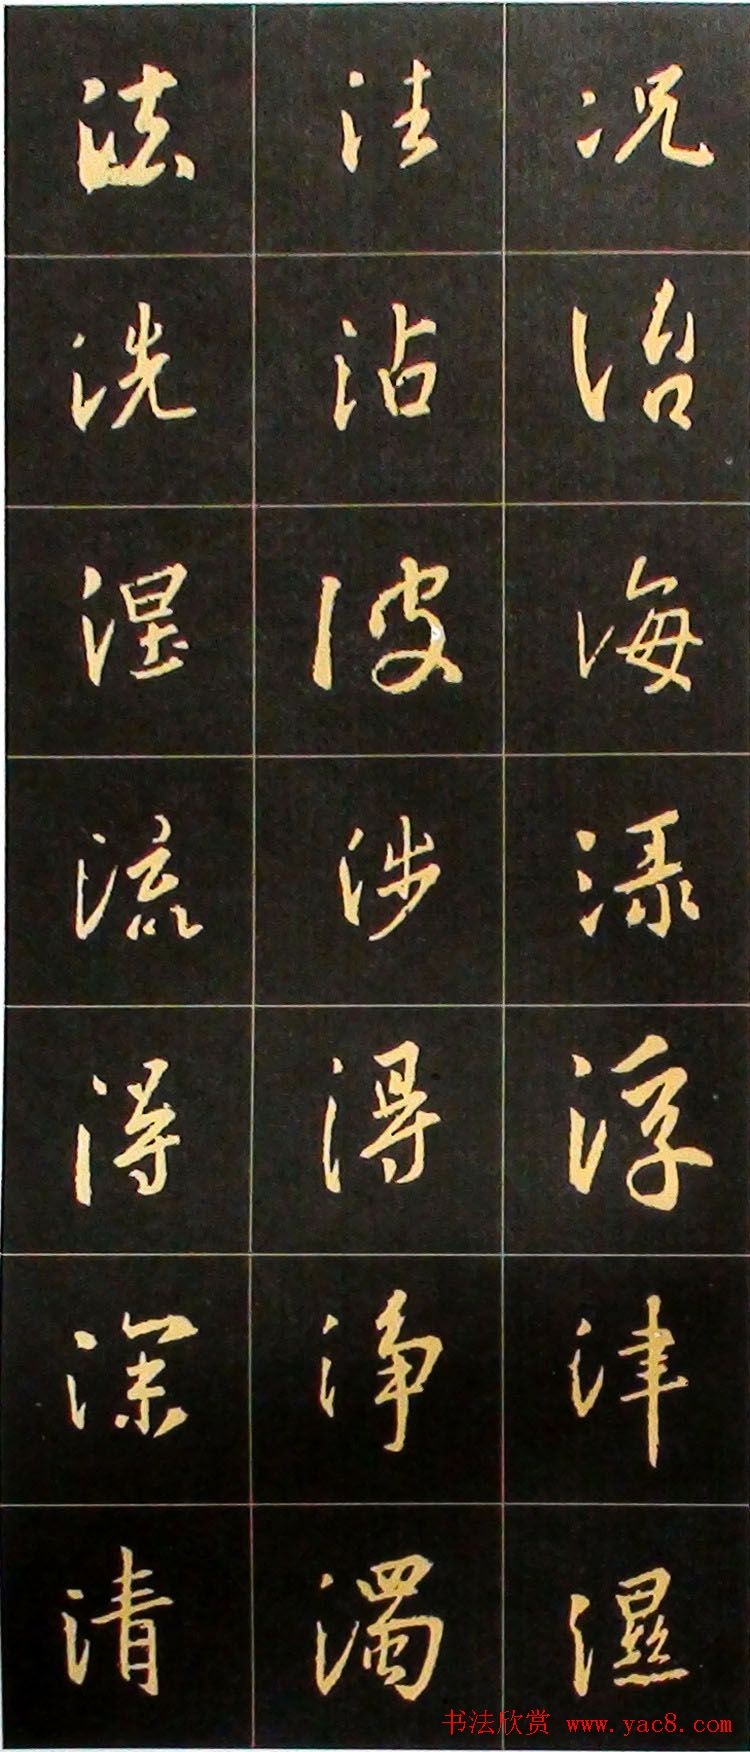 法 法 况
洗 沾 治
涅 波 海
流 涉 渌
得 得 浮
深 淨 津
清 濁 濕
书法欣赏 www.yac8.com